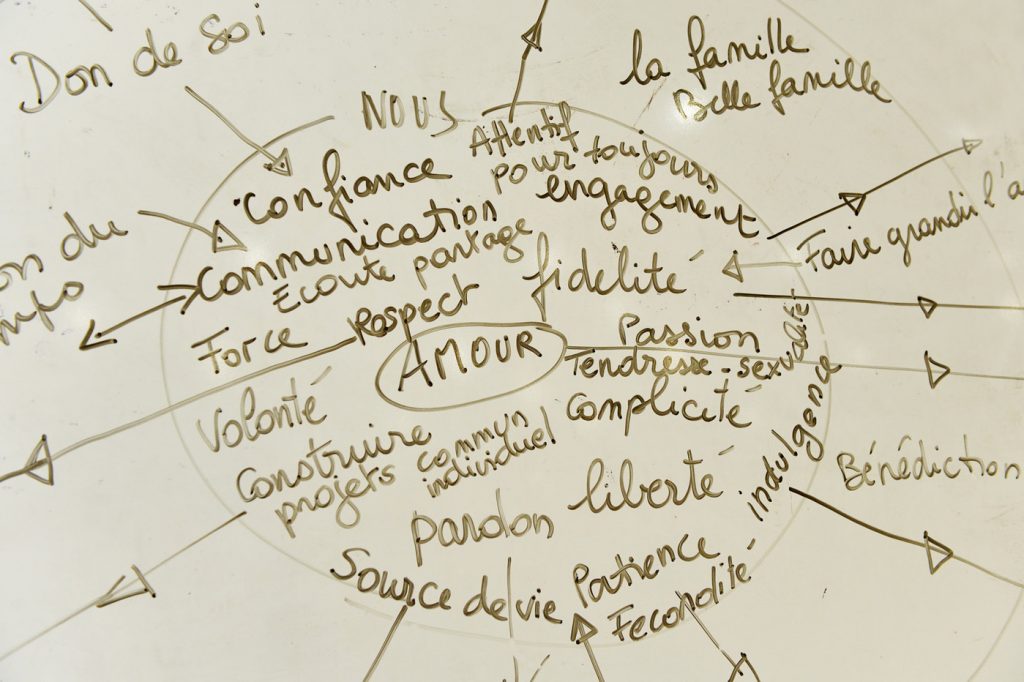 Don de Soi
la famille
Belle famille
NOUS
Attentif
pour toujours
engagement
Confiance
Communication
Ecoute partage
fidelité
Faire grandir l'a
on du
Force
Respect
AMOUR
Passion
Tendresse - sexualité
Complicité
indulgence
Volonté
Construire
projets commun
individuel
liberté
pardon
Bénédiction
Source de vie
Patience
Fecondité